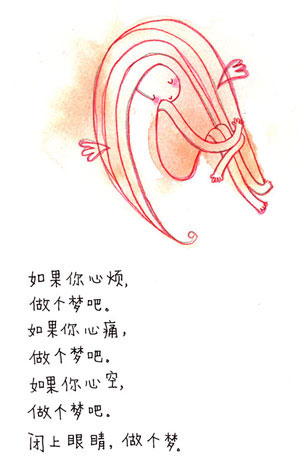 如果你心烦,
做个梦吧。
如果你心痛,
做个梦吧。
如果你心空,
做个梦吧。
闭上眼睛,做个梦。